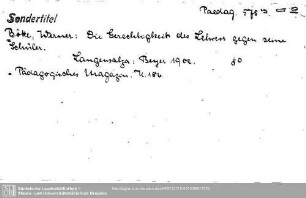 Paedag.
Sondertitel
Bötte, Werner: Die Gerechtigkeit des Lehrers gegen seine
Schüler.
Langensalza: Beyer 1902. 8°
Pädagogisches Magazin. H. 184.
Sächsische Landesbibliothek -
Staats- und Universitätsbibliothek Dresden